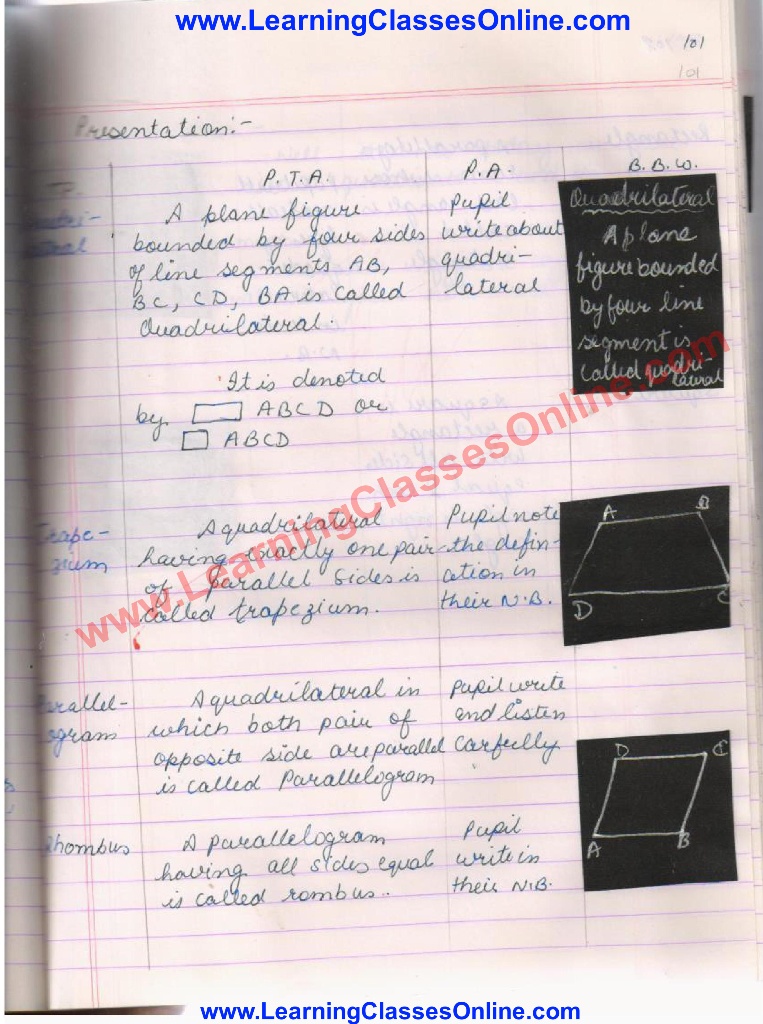 www.LearningClassesOnline.com
101
101
Presentation:-
T.P.
P.T.A.
P.A.
B.B.W.
A plane figure
bounded by four sides
of line segments AB,
BC, CD, BA is called
Quadrilateral.
It is denoted
by ABCD or
ABCD
Pupil
write about
quadri-
lateral
Quadrilateral
A plane
figure bounded
by four line
segment is
called quadri-
lateral
Trape-
zium
A quadrilateral
having exactly one pair
of parallel sides is
called trapezium.
Pupil note
the defin-
ation in
their N.B.
A B
D C
Parallel-
ogram
A quadrilateral in
which both pair of
opposite side are parallel
is called Parallelogram
Pupil write
and listen
carfully
D C
A B
Rhombus
A parallelogram
having all sides equal
is called rombus.
Pupil
write in
their N.B.
www.LearningClassesOnline.com
www.LearningClassesOnline.com